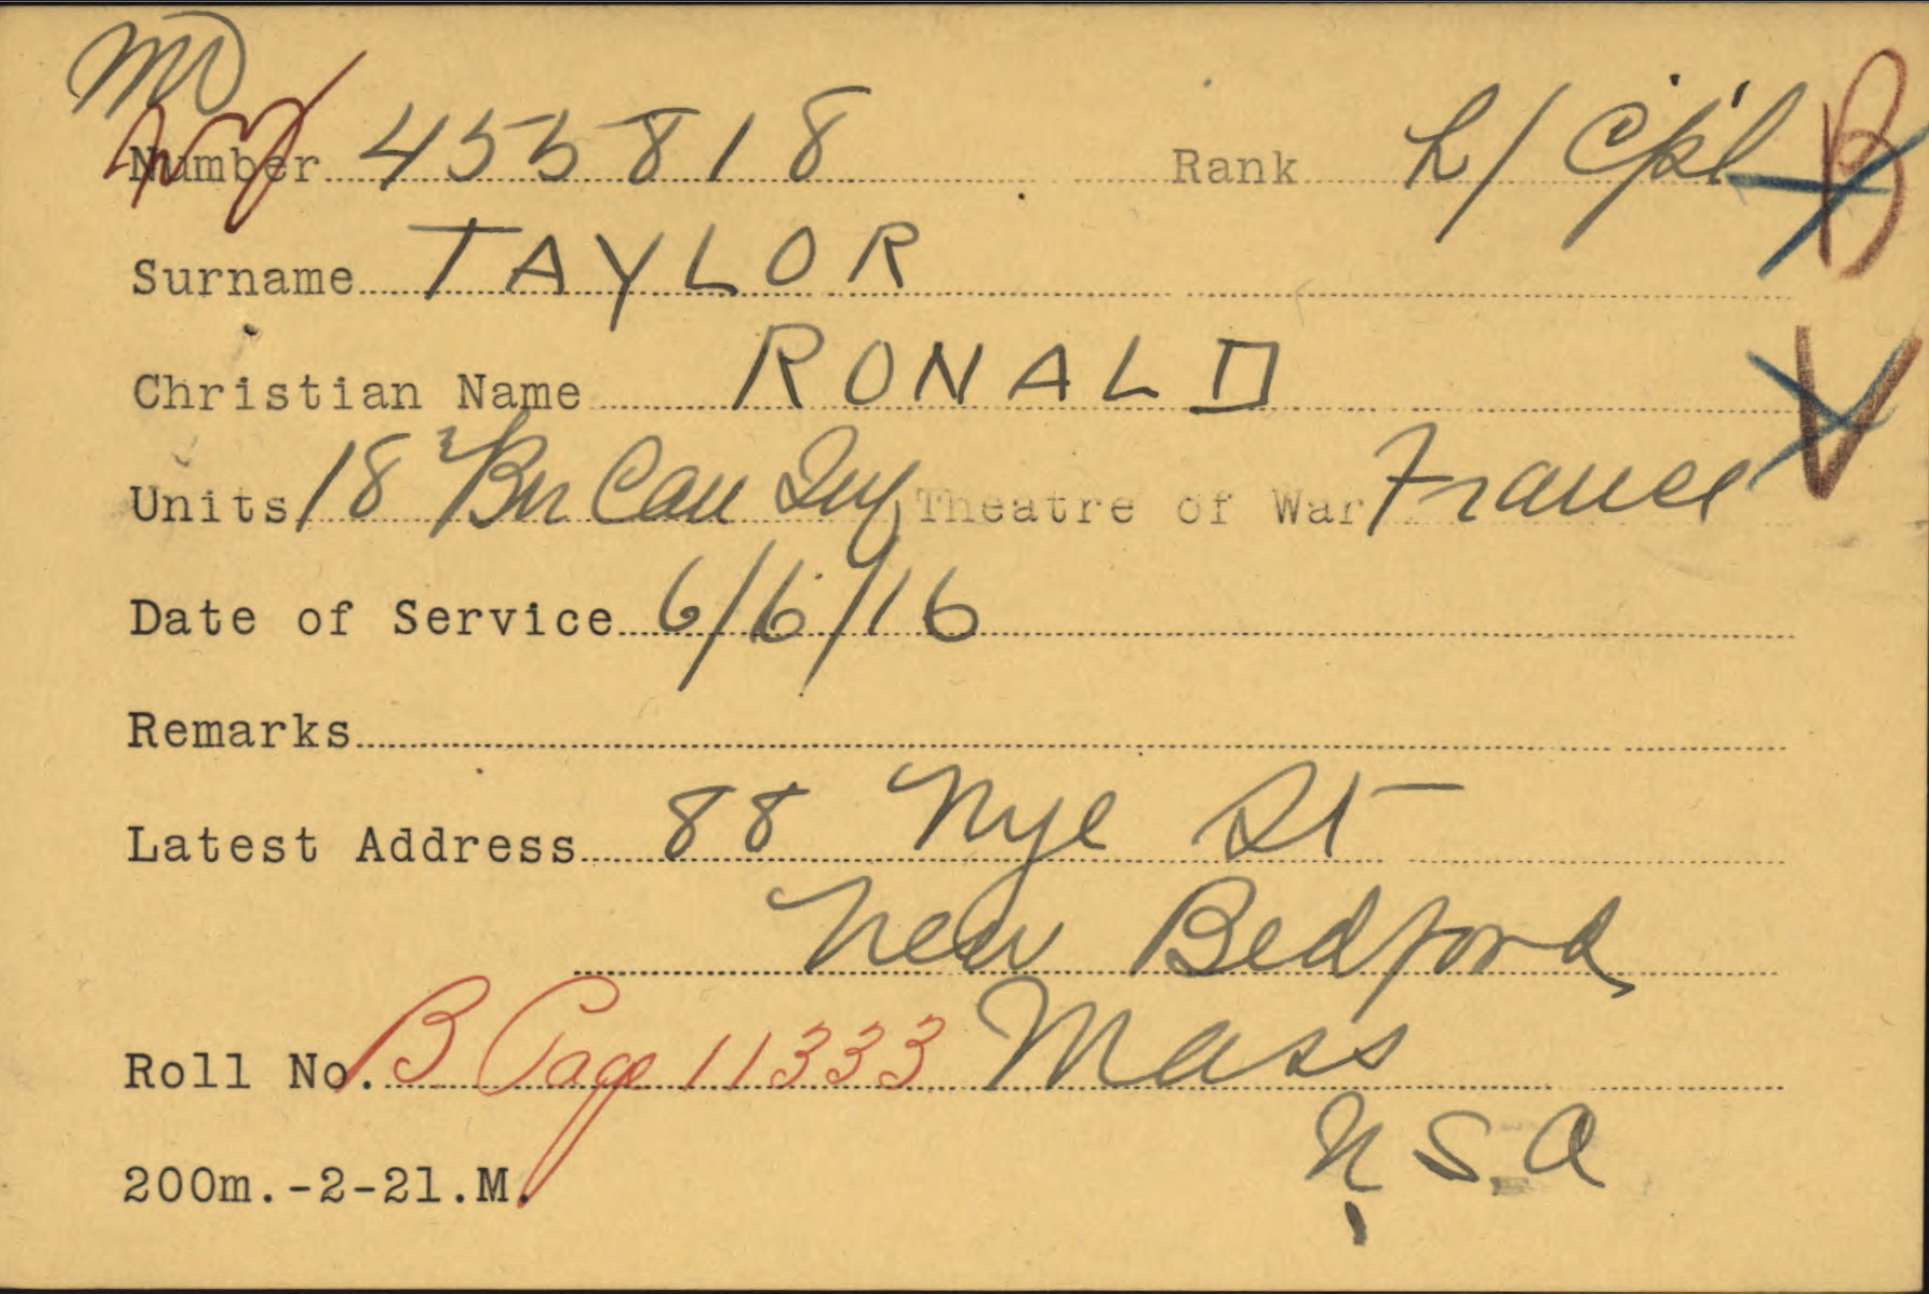 MD
Number 455818 Rank L/Cpl B
Surname TAYLOR
Christian Name RONALD V
Units 18 Bn Can Inf Theatre of War France
Date of Service 6/6/16
Remarks
Latest Address 88 Nye St
New Bedford,
Roll No. B Page 11333 Mass
U.S.A
200m.-2-21.M.